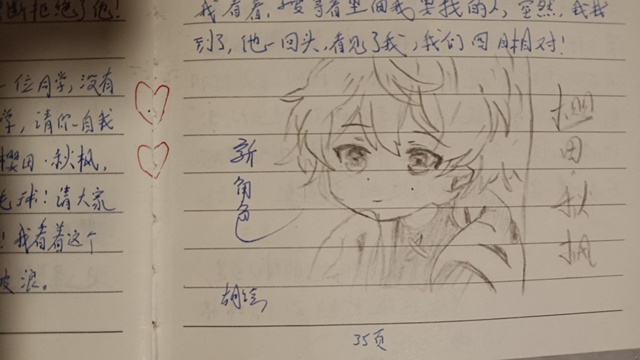 断拒绝了他!
一位同学,没有
学,请你自我
樱田·秋枫,
毛球!请大家
!我看着这个
波浪。
我看着,要寻看里面我要找的人,突然,我找
到了,他一回头,看见了我,我们四目相对!
新角色
樱田·秋枫
胡绘
35页